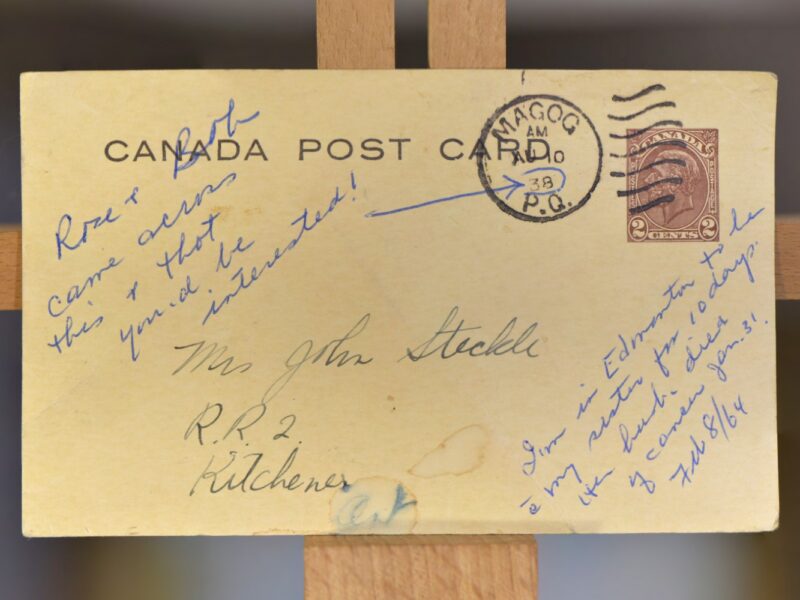 CANADA POST CARD
MAGOG
AM
AU 10
38
P.Q.
CANADA
2 CENTS 2
Rose + Bob
came across
this + thot
you'd be
interested!
Mrs John Steckle
R.R. 2.
Kitchener
Ont
I'm in Edmonton to be
c̄ my sister for 10 days.
Her husb. died
of cancer Jan. 31.
Feb 8/64